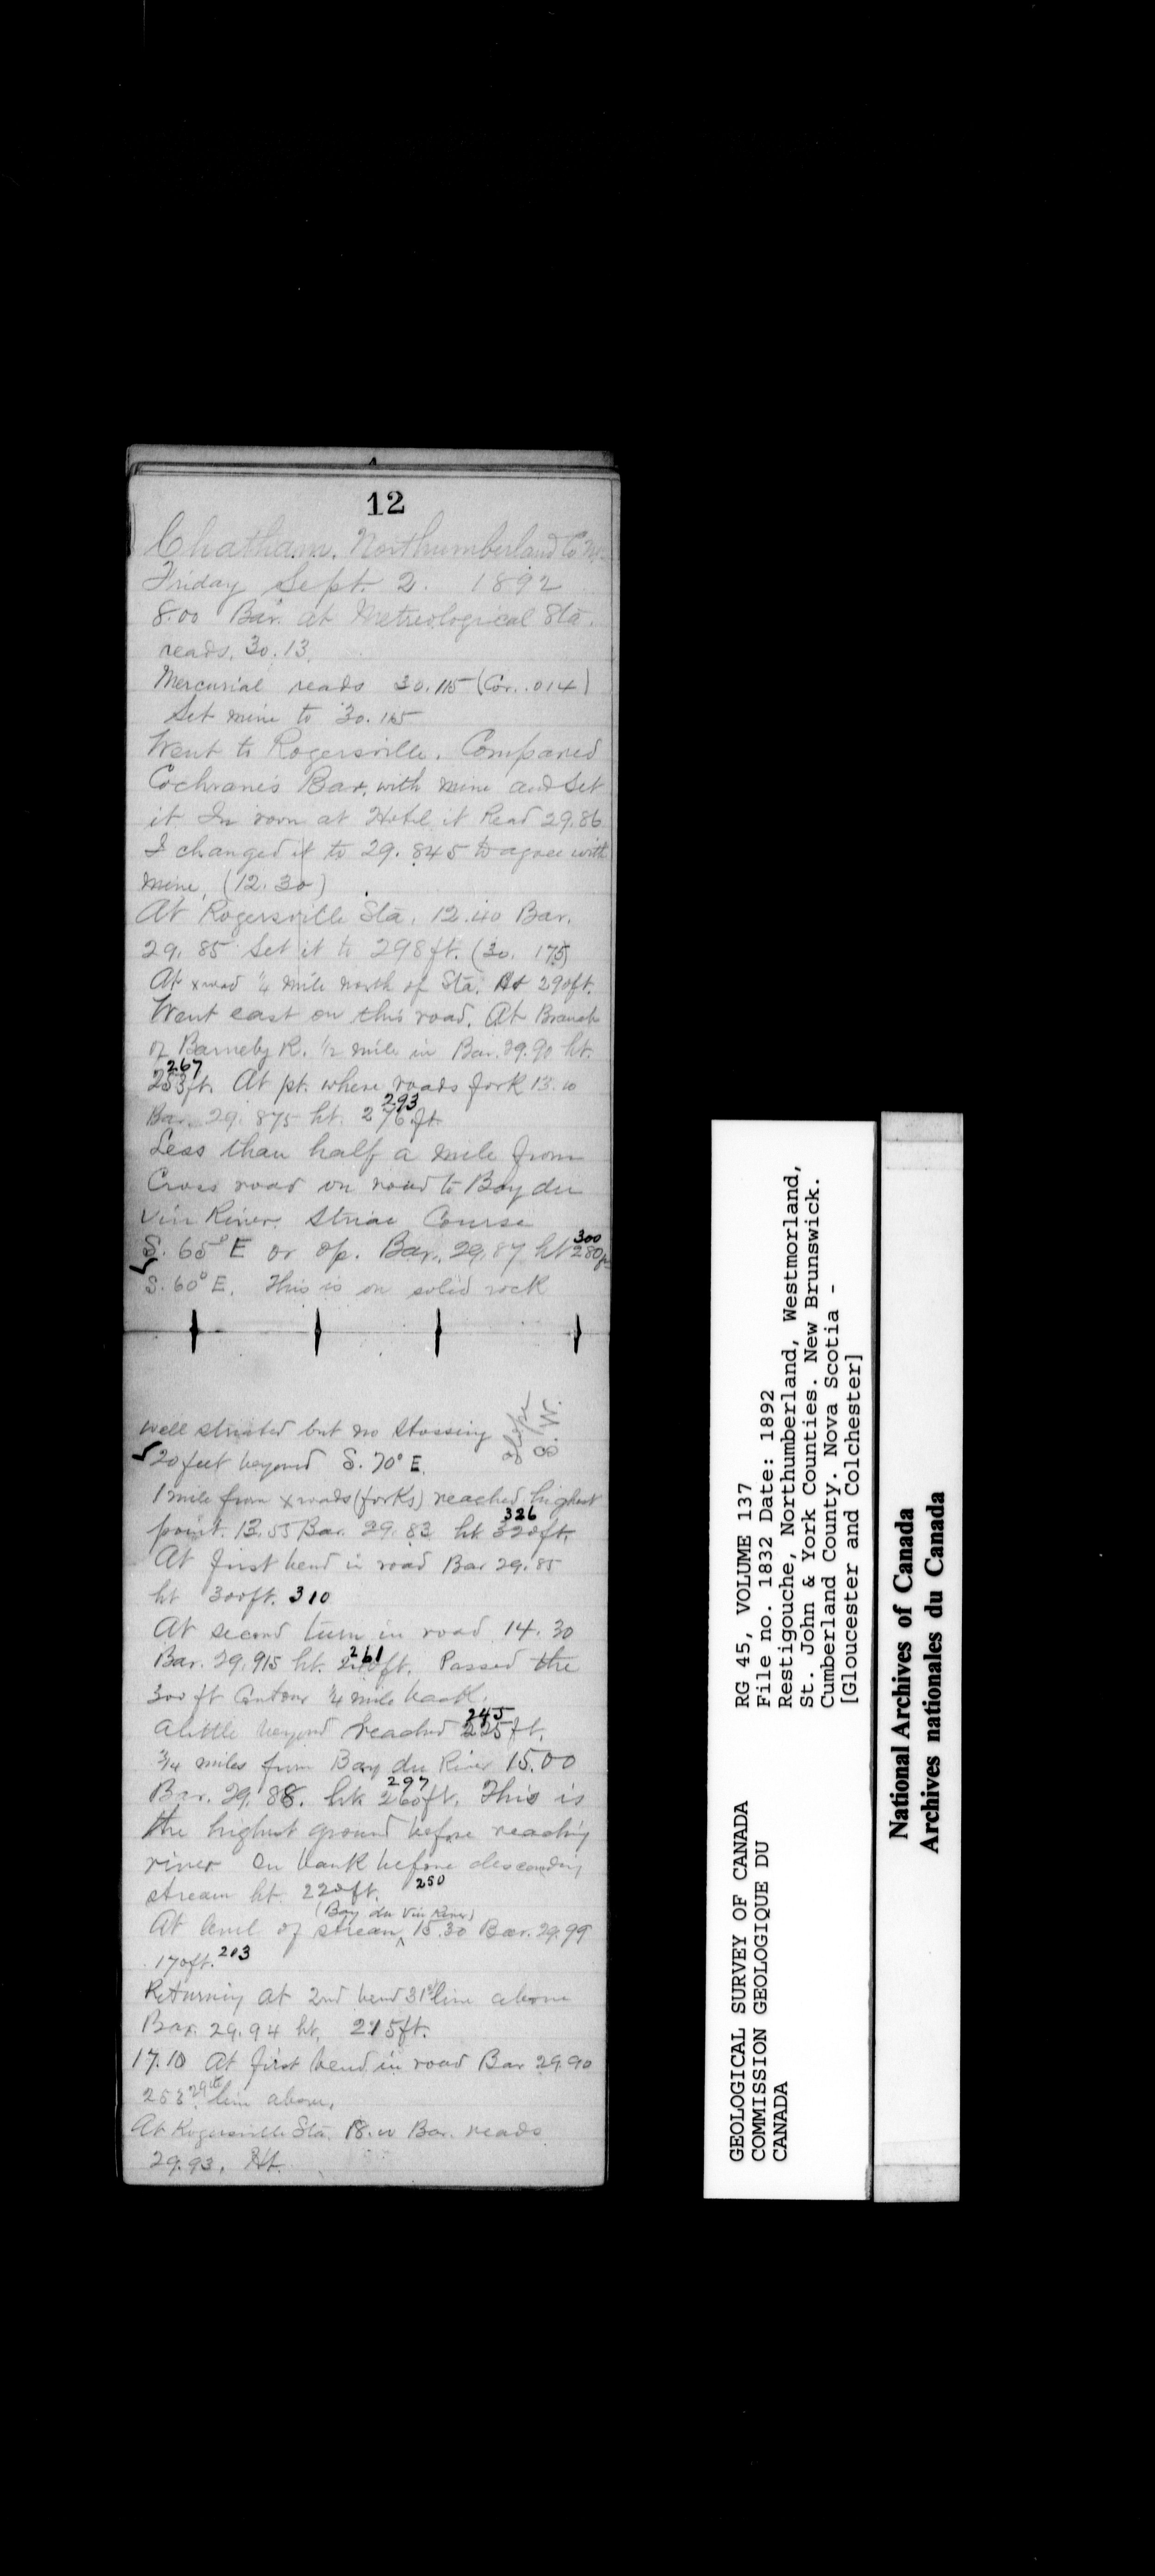 12
Chatham. Northumberland Co N.B.
Friday Sept. 2. 1892
8.00 Bar. at Metreological Sta.
reads. 30.13.
Mercurial reads 30.115 (Cor. .014)
Set mine to 30.115
Went to Rogersville. Compared
Cochrane's Bar. with mine and set
it. In room at Hotel it Read 29.86
I changed it to 29.845 to agree with
mine. (12.30)
At Rogersville Sta. 12.40 Bar.
29.85 Set it to 298 ft. (30.175)
At x road 1/4 mile north of Sta. Ht 290 ft.
Went east on this road. At Branch
of Barneby R. 1/2 mile in Bar. 29.90 ht.
267
253 ft. At pt. where roads fork 13.10
293
Bar. 29.875 ht. 276 ft.
Less than half a mile from
Cross road on road to Bay du
Vin River. Striae Course
300
S. 65° E or op. Bar. 29.87 ht 280 ft
S. 60° E. This is on solid rock
well striated but no stossing
Slope S.W.
20 feet beyond S. 70° E.
1 mile from x roads (forks) reached highest
326
point. 13.55 Bar. 29.83 ht 320 ft.
At first bend in road Bar 29.85
ht 300 ft. 310
At second turn in road 14.30
261
Bar. 29.915 ht. 240 ft. Passed the
300 ft Contour 1/4 mile back.
245
a little beyond reached 225 ft.
3/4 miles from Bay du River 15.00
297
Bar. 29.88. ht. 260 ft. This is
the highest ground before reaching
river On bank before descending
stream ht. 220 ft. 250
(Bay du Vin River)
At level of stream ^ 15.30 Bar. 29.99
170 ft. 203
Returning at 2nd bend 31st line above
Bar. 29.94 ht. 215 ft.
17.10 At first bend in road Bar 29.90
253 29th line above.
At Rogersville Sta. 18.00 Bar. reads
29.93. Ht.
GEOLOGICAL SURVEY OF CANADA
COMMISSION GEOLOGIQUE DU
CANADA
RG 45, VOLUME 137
File no. 1832 Date: 1892
Restigouche, Northumberland, Westmorland,
St. John & York Counties. New Brunswick.
Cumberland County. Nova Scotia -
[Gloucester and Colchester]
National Archives of Canada
Archives nationales du Canada